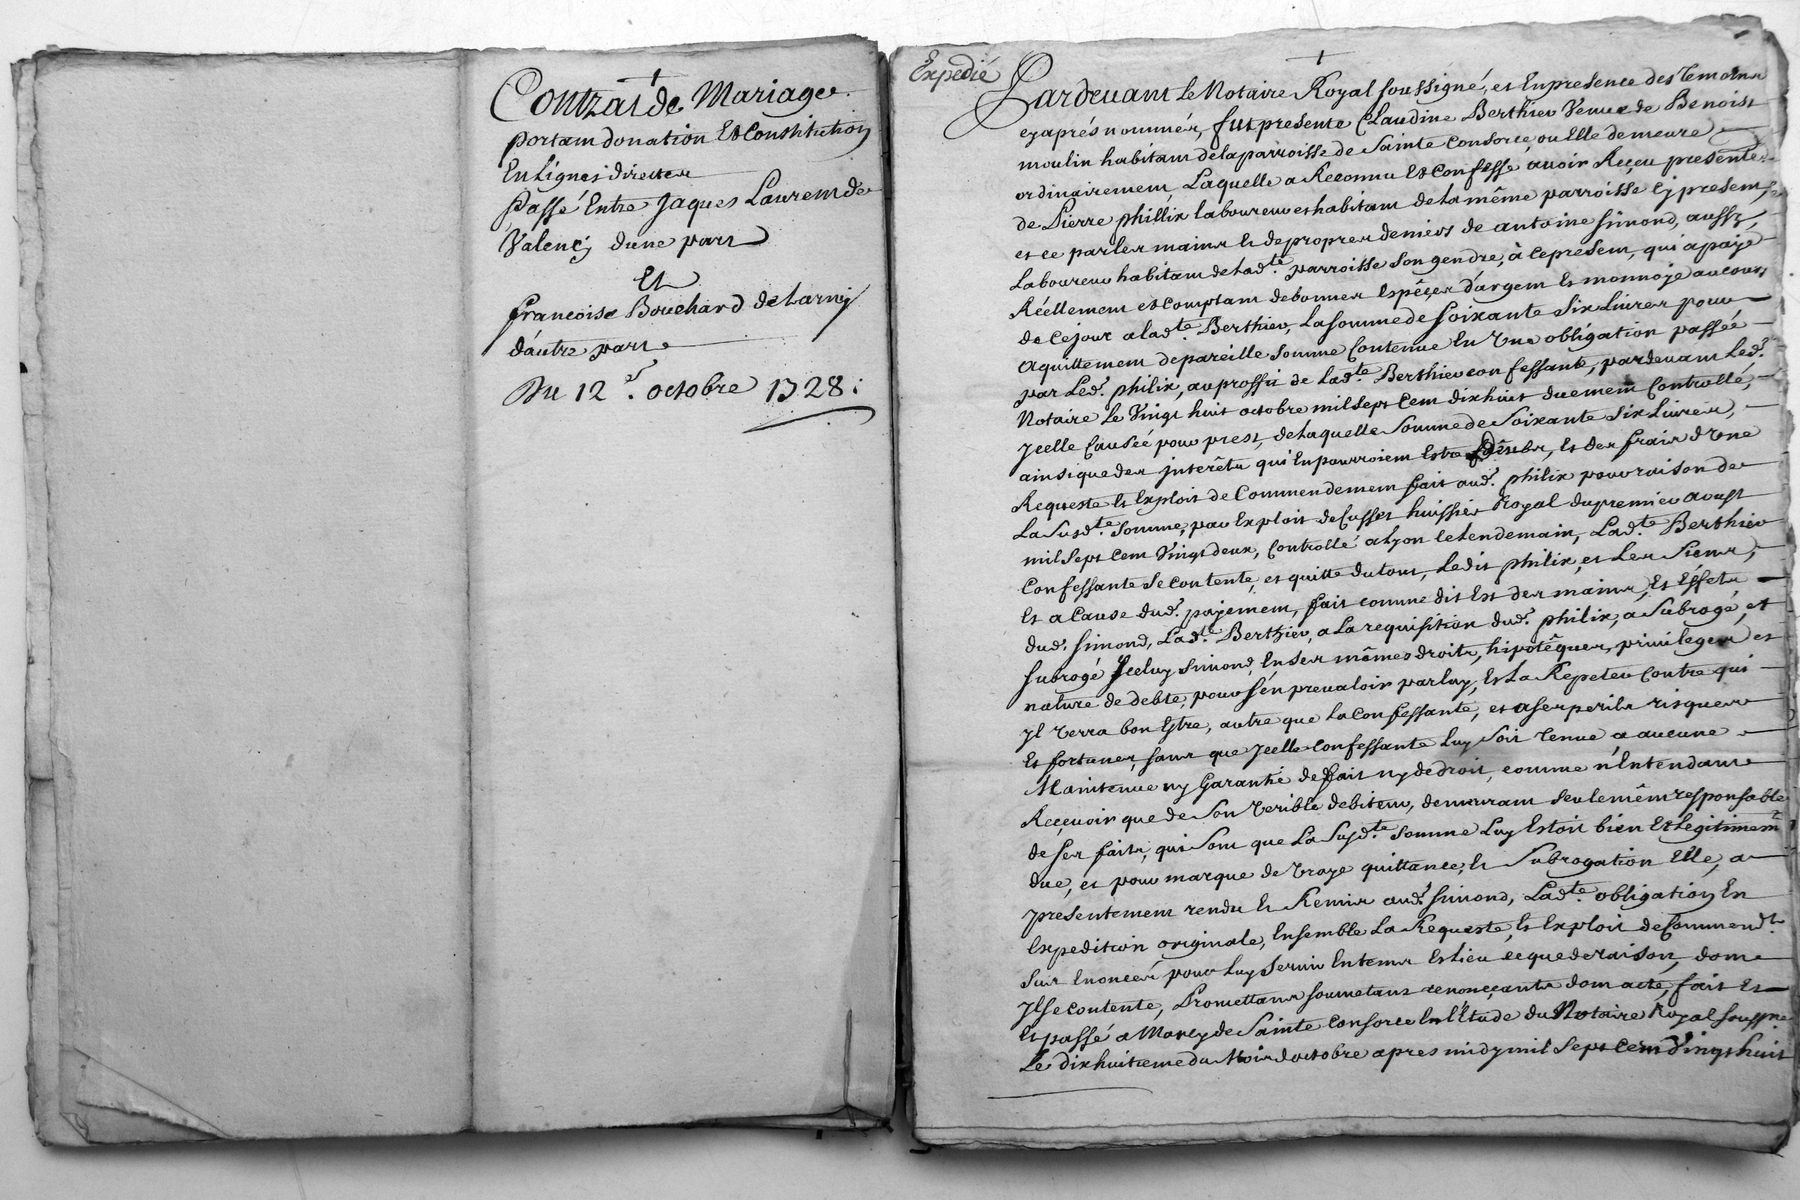 Contrat de Mariage
portant donation Et Constitution
En Lignes directes
Passé Entre Jaques Laurent de
Valenej d'une part
Et
francoise Bouchard de Larnij
d'autre part
Du 12e. octobre 1728 :
Expedié
Pardevant Le Notaire Royal soussigné, et En presence des temoins
cy aprés nommés, fut presente Claudine Berthier Veuve de Benoist
moulin habitant de la parroisse de Sainte Consorce ou Elle demeure
ordinairement, Laquelle a Reconnu Et Confessé avoir Reçu presentem.t
de Pierre phillix laboureur et habitant de la même parroisse Cy present,
et ce par les mains Et de propres deniers de antoine simond, aussy,
Laboureur habitant de lad.te parroisse son gendre, à ce present, qui a payé
Réellement et comptant de bonnes Espêçes d'argent Et monnoye au cours
de ce jour a lad.te Berthier, La somme de soixante six Livres pour
aquittement de pareille somme Contenue En Une obligation passée
par Led.t philix, au proffit de Lad.te Berthier confessante, pardevant Led.t
Notaire Le Vingt huit octobre mil sept Cent dix huit duement Controllé,
Jcelle Causée pour prest, de laquelle Somme de Soixante Six Livres,
ainsi que des jnterêts qui En pourroient Estre dûs, Et des frais d'Une
Requeste Et Exploit de Commendement fait aud.t philix pour raison de
La Susd.te Somme, par Exploit de Cusset huissier Royal du premier aoust
mil Sept Cent Vingt deux, Controllé a Lyon le lendemain, Lad.te Berthier
Confessante Se contente, et quitte du tout, Ledit philix, et Les Siens,
Et a Cause dud.t payement, fait comme dit Est des mains, Et Effets
dud.t simond, Lad.te Berthier, a La requisition dud.t philix, a Subrogé, et
subrogé Jceluy simond, En ses mêmes droits, hipotêques, privileges et
nature de debte, pour s'en prevaloir par luy, Et La Repeter Contre qui
Jl Verra bon Estre, autre que La Confessante, et a ses perils risques
Et fortunes, sans que Jcelle Confessante Luy Soit tenue a aucune
Maintenue ny Garantie de fait ny de droit, comme n'Entendant
Reçevoir que de Son Verible debiteur, demeurant seulemênt responsable
de ses faits, qui sont que La Susd.te Somme Luy Estoit bien Et Legitimem.t
due, et pour marque de Vraye quittance, Et Subrogation Elle, a
presentement rendu Et Remis aud.t simond, Lad.te obligation En
Expedition originale, Ensemble La Requeste, Et Exploit de Commend.t
Sus Enoncés pour Luy Servir En tems Et Lieu ce que de raison, dont
Jl se contente, Promettans soumetans renonçants dont acte, fait Et
Et passé a Marcy de Sainte Consorce En l'Etude du Notaire Royal soussigné
Le dix huitieme du Mois d'octobre apres midy mil Sept Cent Vingt huit